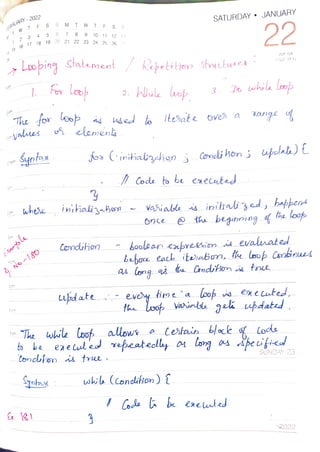 JANUARY - 2022
SATURDAY • JANUARY
22
→ Looping Statement / Repetition Structures:
1. For Loop 2. While loop 3. Do while loop
The for loop is used to iterate over a range of
values or elements
Syntax for (initialization ; condition ; update) {
// Code to be executed
}
where initialization - variable is initialized, happens
once @ the beginning of the loop
Example
No - 180
condition - boolean expression is evaluated
before each iteration, the loop continues
as long as the condition is true
update - every time a loop is executed,
the loop variable gets updated.
The while loop allows a certain block of code
to be executed repeatedly as long as specified
condition is true.
SUNDAY 23
Syntax while (condition) {
// Code to be executed
}
181
2022